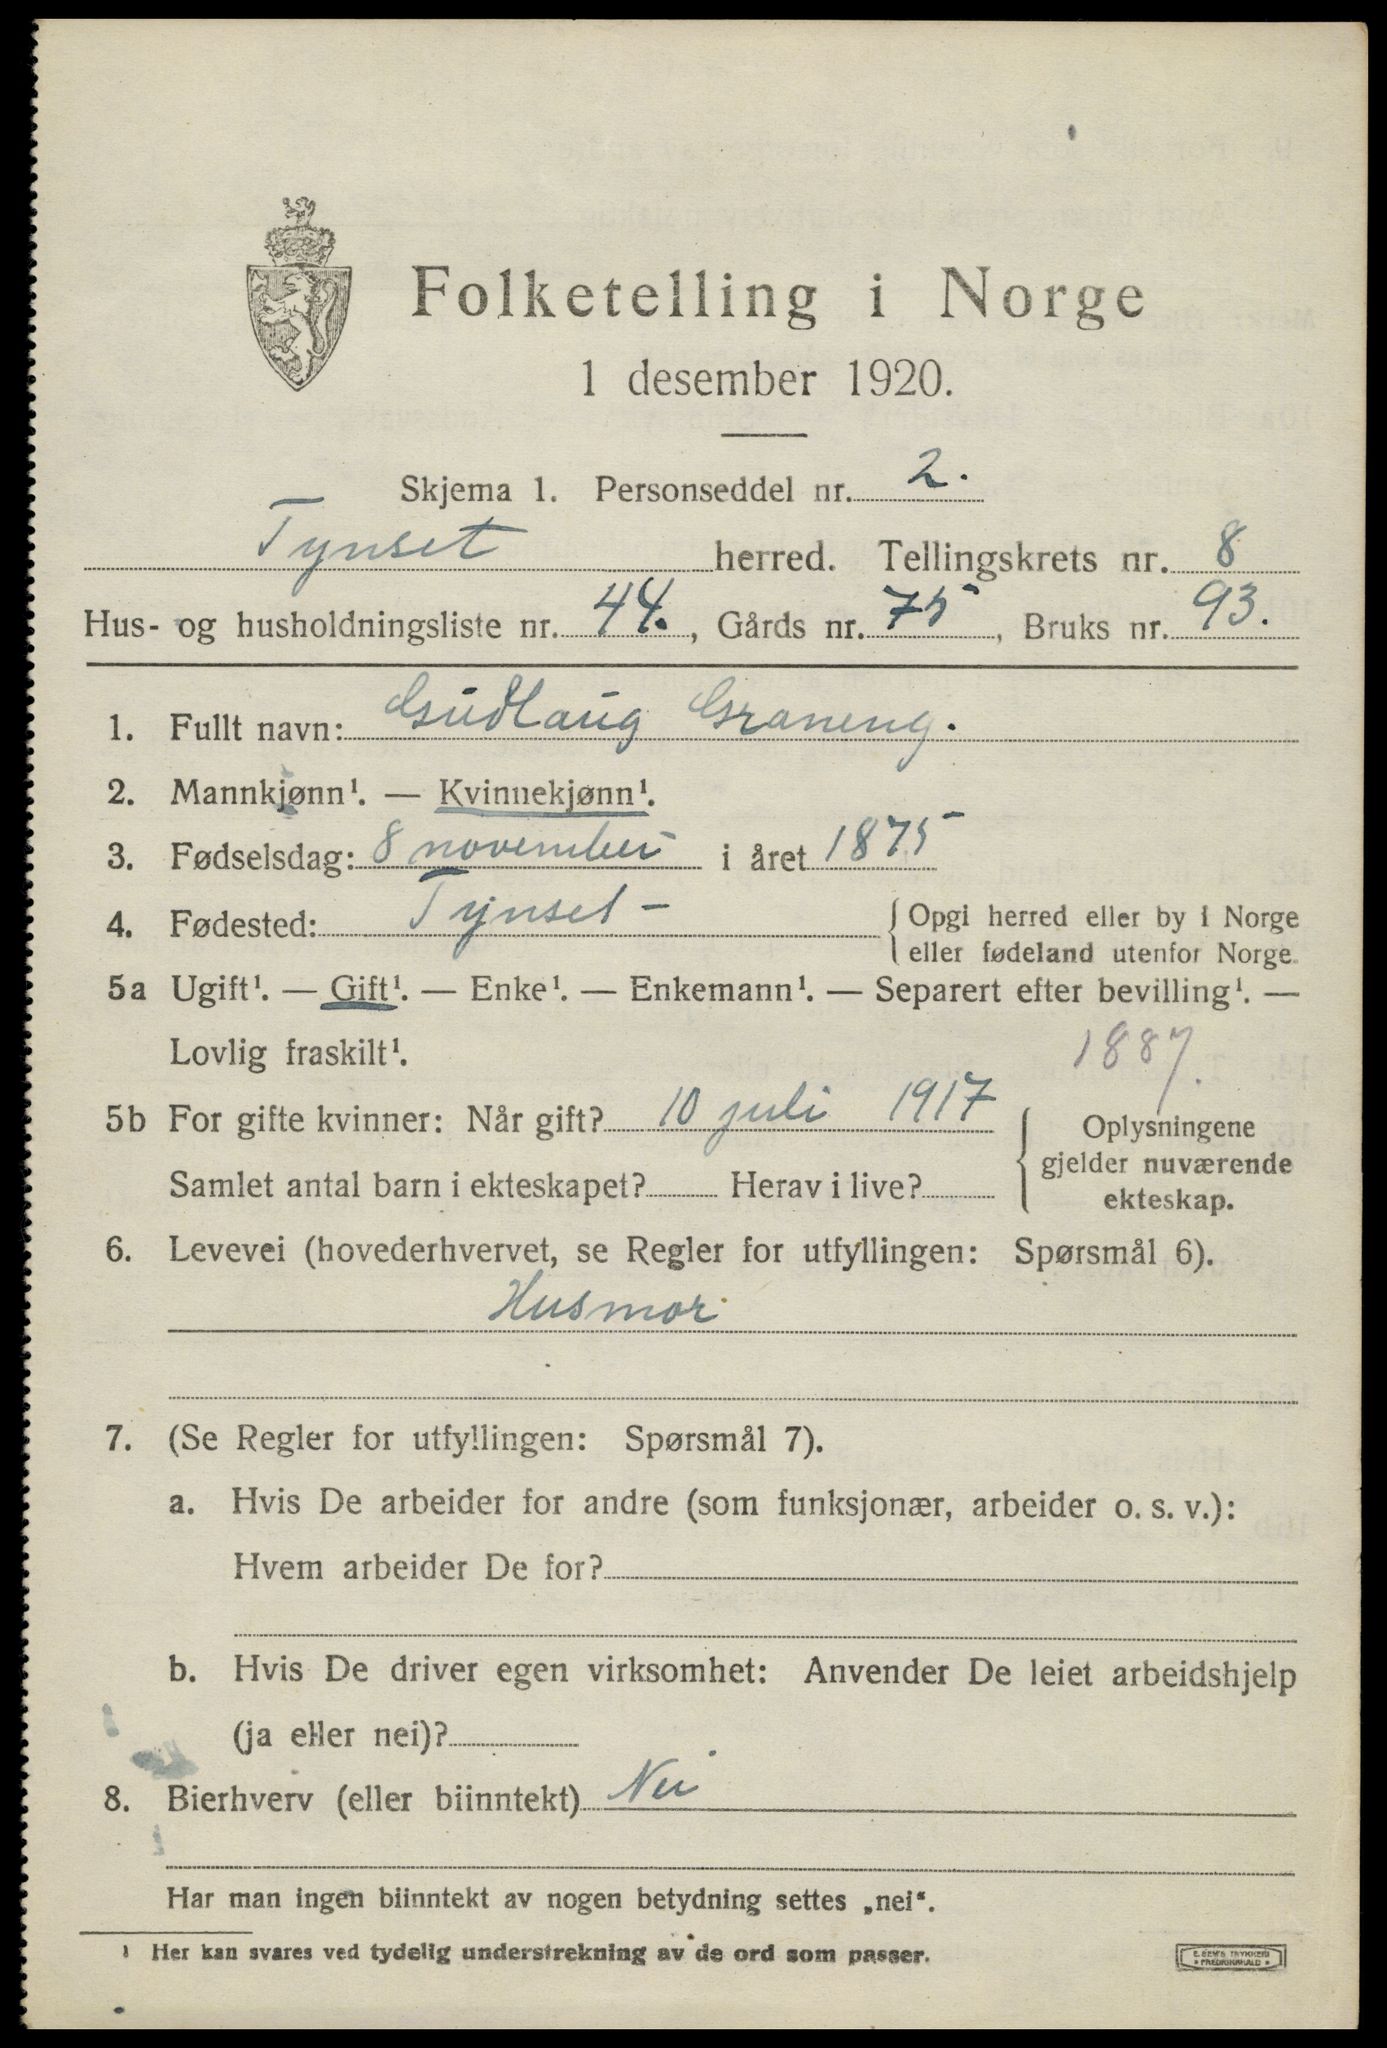 Folketelling i Norge
1 desember 1920.
Skjema 1. Personseddel nr. 2.
Tynset herred. Tellingskrets nr. 8
Hus- og husholdningsliste nr. 44., Gårds nr. 75, Bruks nr. 93.
1. Fullt navn: Gudlaug Graneng.
2. Mannkjønn¹. — Kvinnekjønn¹.
3. Fødselsdag: 8 november i året 1875
4. Fødested: Tynset - { Opgi herred eller by i Norge
eller fødeland utenfor Norge.
5a Ugift¹. — Gift¹. — Enke¹. — Enkemann¹. — Separert efter bevilling¹. —
Lovlig fraskilt¹. 1887.
5b For gifte kvinner: Når gift? 10 juli 1917 { Oplysningene
gjelder nuværende
Samlet antal barn i ekteskapet? Herav i live? ekteskap.
6. Levevei (hovederhvervet, se Regler for utfyllingen: Spørsmål 6).
Husmor
7. (Se Regler for utfyllingen: Spørsmål 7).
a. Hvis De arbeider for andre (som funksjonær, arbeider o. s. v.):
Hvem arbeider De for?
b. Hvis De driver egen virksomhet: Anvender De leiet arbeidshjelp
(ja eller nei)?
8. Bierhverv (eller biinntekt) Nei
Har man ingen biinntekt av nogen betydning settes „nei“.
¹ Her kan svares ved tydelig understrekning av de ord som passer.
E. SEM'S TRYKKERI
* FREDRIKSHALD *